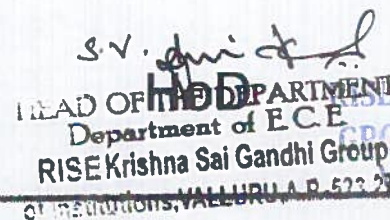 S.V.
HoD
HEAD OF THE DEPARTMENT
Department of E C E
RISE Krishna Sai Gandhi Group
of Institutions, VALLURU, A.P-523 27